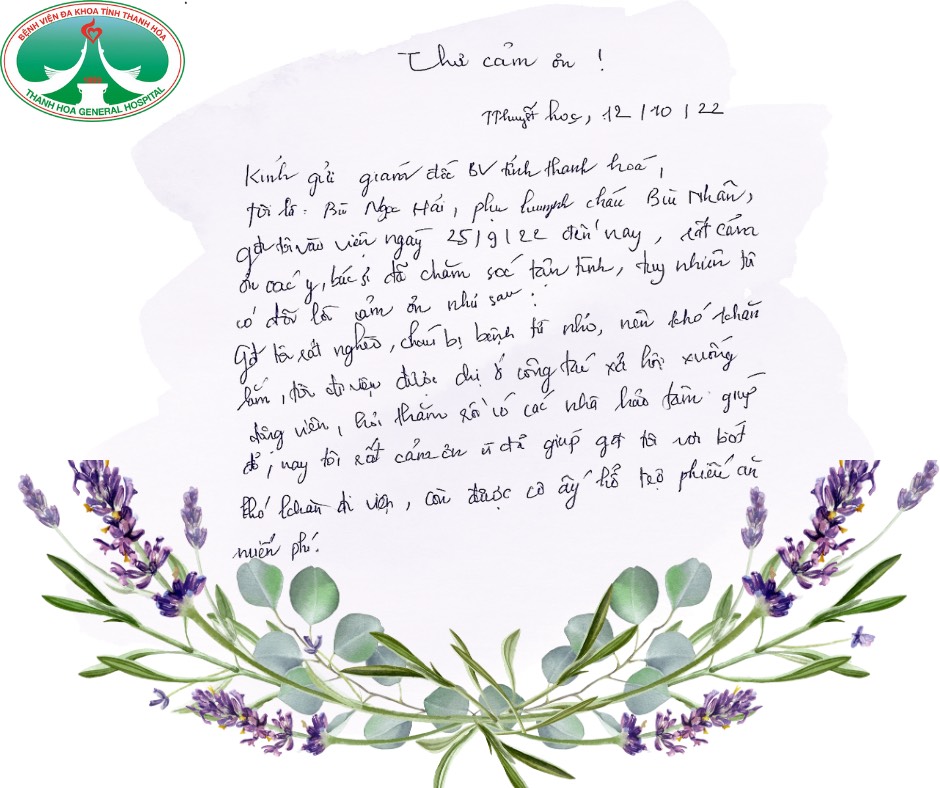 BỆNH VIỆN ĐA KHOA TỈNH THANH HÓA
THANH HOA GENERAL HOSPITAL
Thư cảm ơn !
học, 12/10/22
Kính gửi giám đốc BV tỉnh thanh hoá,
Tôi là: Bùi Ngọc Hải, phụ huynh cháu Bùi Nhân,
gđ tôi vào viện ngày 25/9/22 đến nay, rất cảm
ơn các y, bác sĩ đã chăm sóc tận tình, tuy nhiên tô
có đôi lời cảm ơn như sau:
Gđ tôi rất nghèo, cháu bị bệnh từ nhỏ, nên khó khăn
lắm, tôi đi viện được chị ở công tác xã hội xuống
động viên, hỏi thăm rồi có các nhà hảo tâm giúp
đỡ, nay tôi rất cảm ơn vì đã giúp gđ tôi vơi bớt
khó khăn đi viện, còn được cô ấy hỗ trợ phiếu ăn
miễn phí.